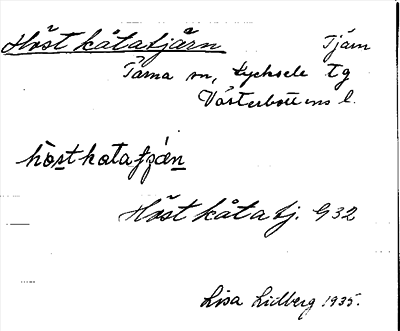 Höstkåtatjärn Tjärn
Tärna sn, Lycksele tg
Västerbottens l.
höstkatafjän
Höstkåtatj. G32
Lisa Lidberg 1935.